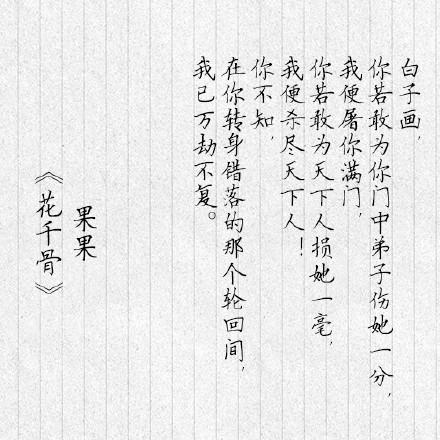 白子画，
你若敢为你门中弟子伤她一分，
我便屠你满门，
你若敢为天下人损她一毫，
我便杀尽天下人！
你不知，
在你转身错落的那个轮回间，
我已万劫不复。
果果
《花千骨》